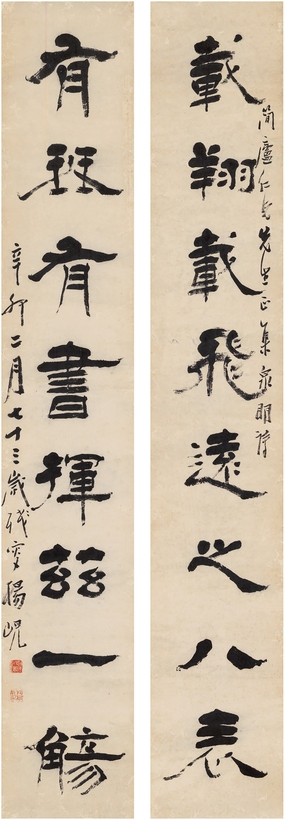 載翔載飛遠之八表
簡廬仁兄先生正集泉明詩
有琴有書揮茲一觴
辛卯二月七十三歲殘叟楊峴